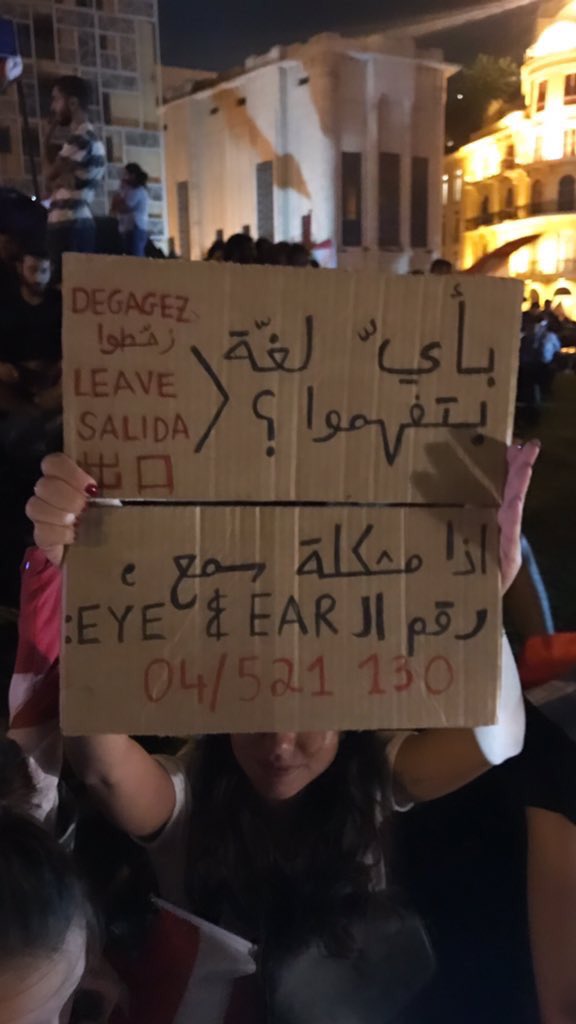 بأيّ لغّة
بتفهموا ؟
DEGAGEZ
زحّطوا
LEAVE
SALIDA
出口
اذا مشكلة سمع ء
رقم ال EYE & EAR:
04/521 130